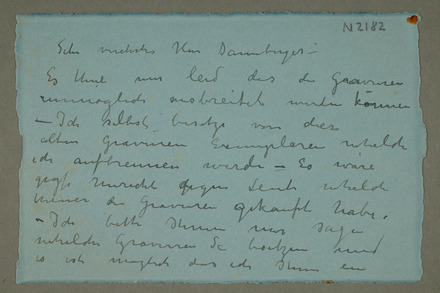 N2182
Sehr verehrter Herr Dannberger –
Es thut mir leid das die Gravuren
unmöglich ausbreitet werden können
– Ich selbst besitze von dies
alten Gravuren Exemplaren welche
ich aufbrennen werde – Es wäre
groß Unrecht gegen Leute welche
immer die Gravuren gekauft habe.
– Ich bitte Ihnen mir sagen
welche Gravuren Sie besitzen und
is ist möglich das ich Ihnen ein